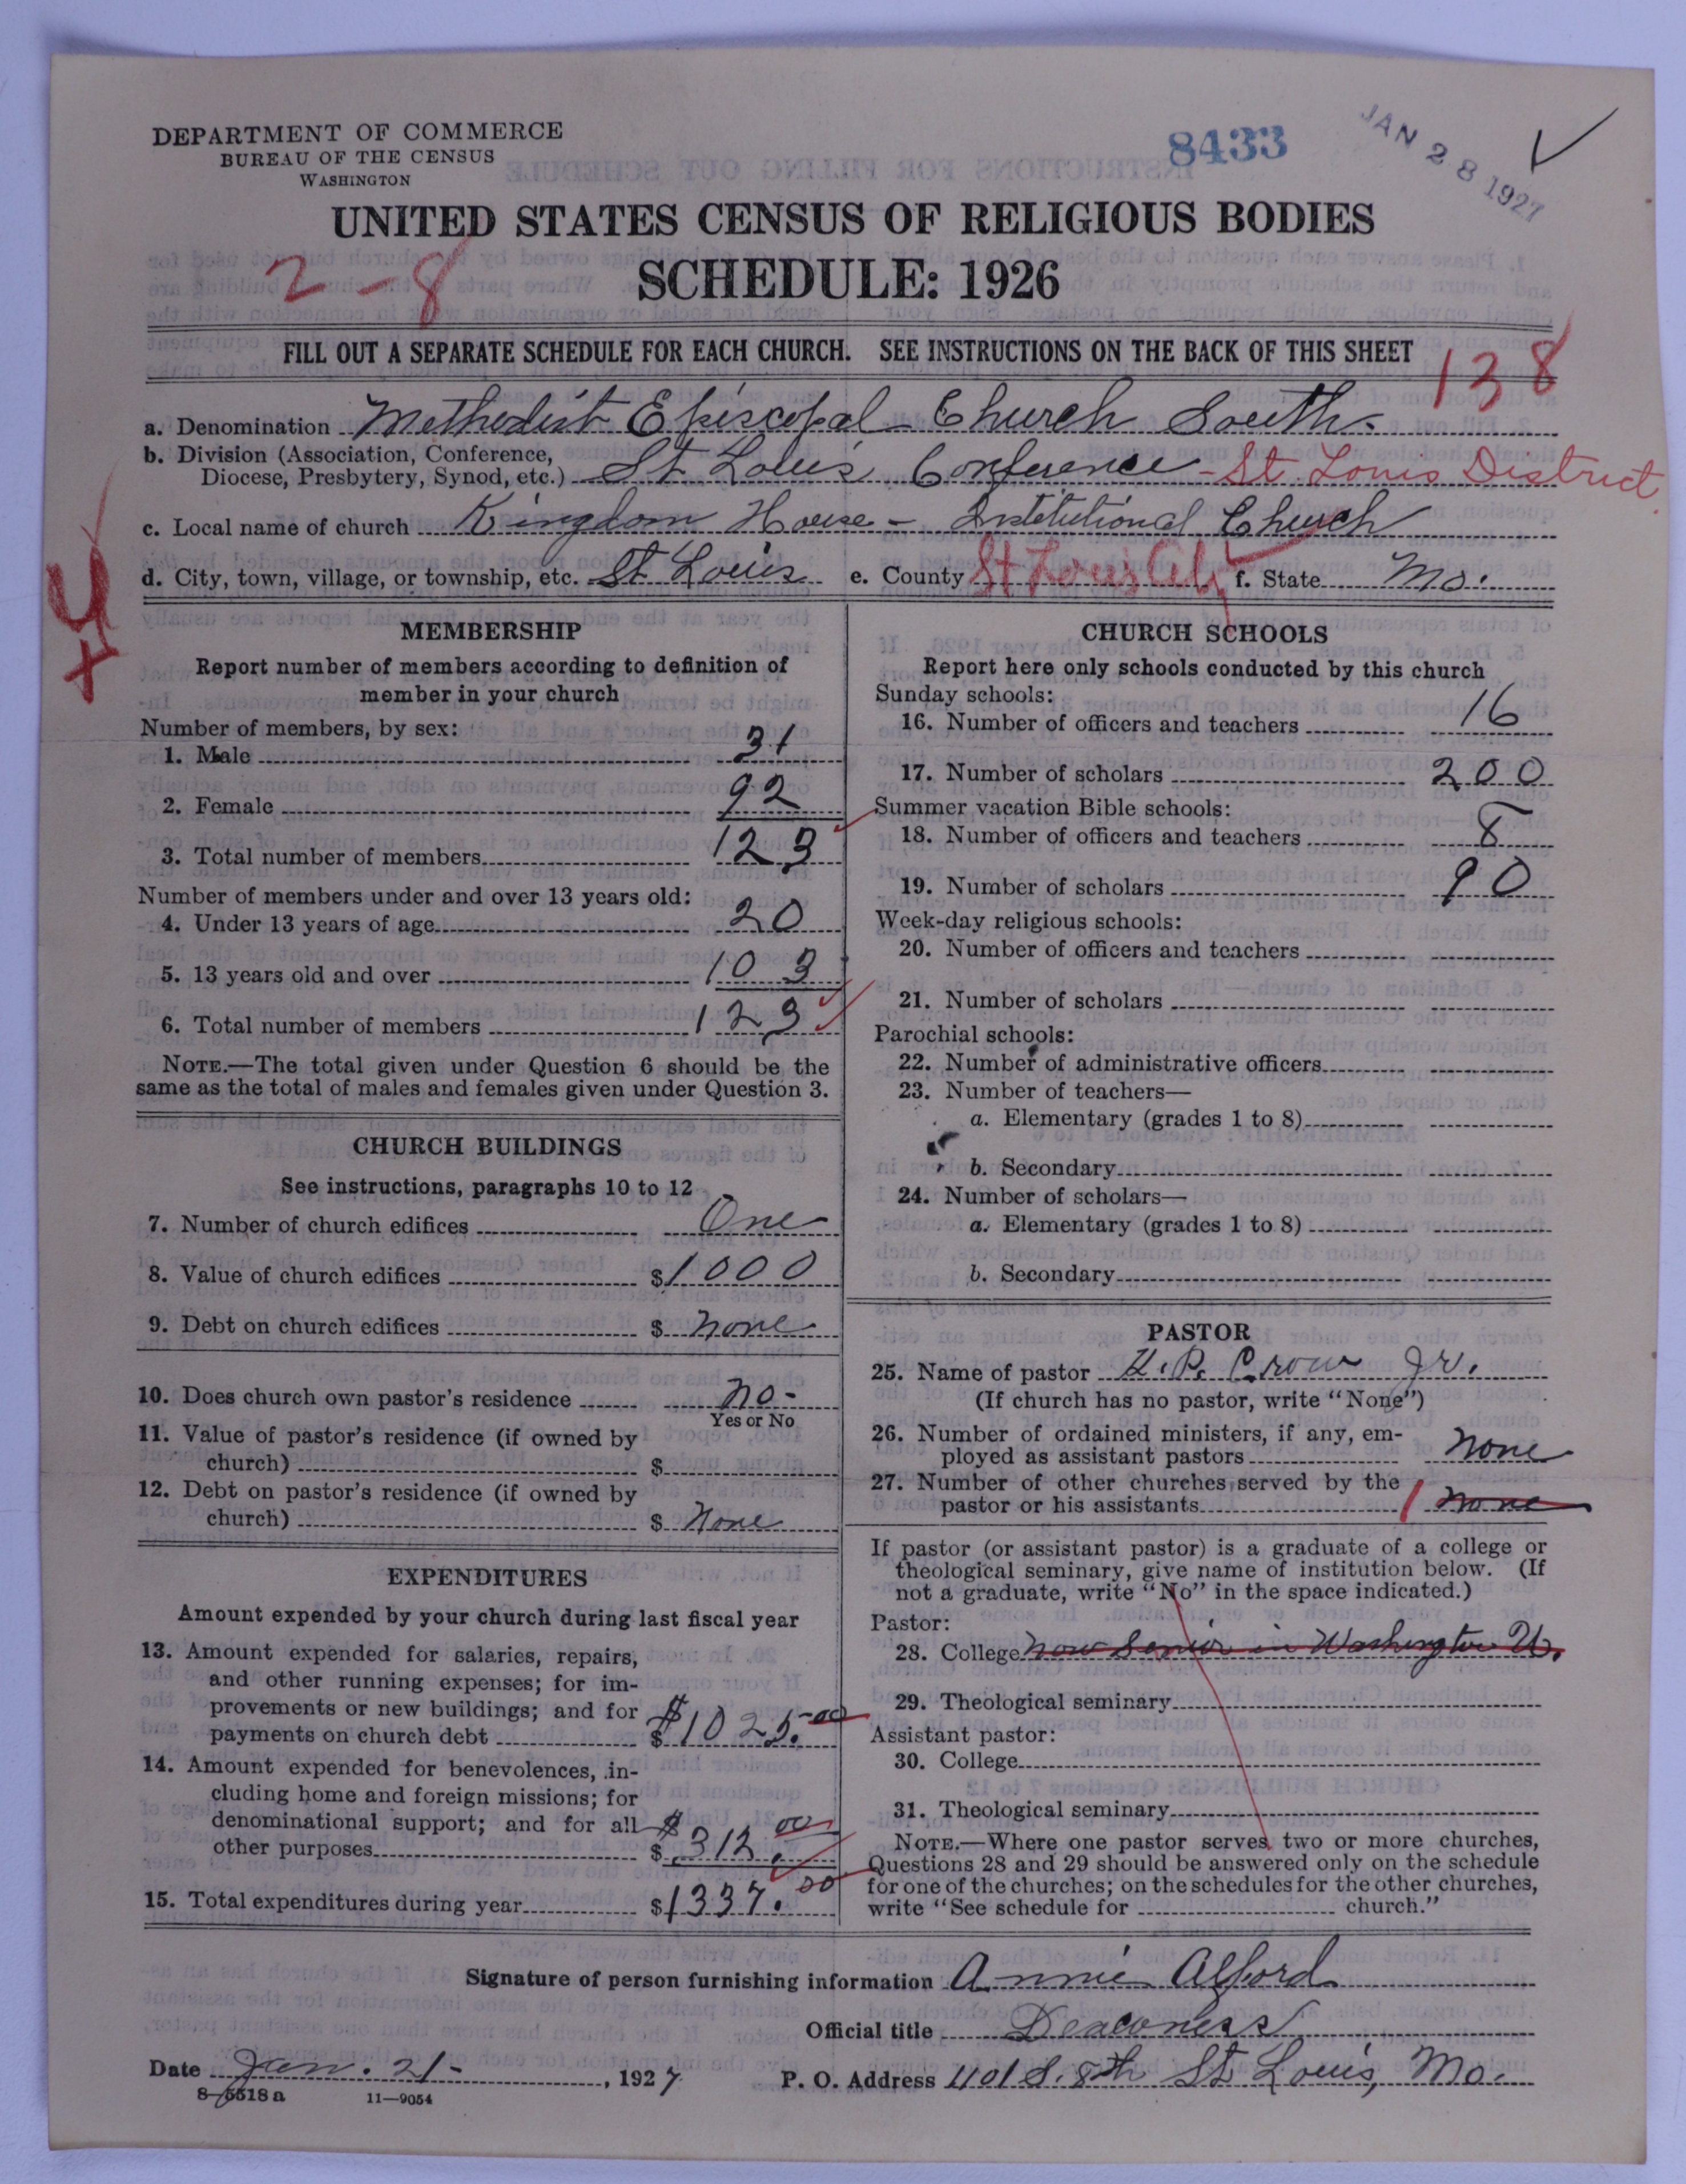 DEPARTMENT OF COMMERCE
BUREAU OF THE CENSUS
WASHINGTON
8433
JAN 28 1927
UNITED STATES CENSUS OF RELIGIOUS BODIES
2-8
SCHEDULE: 1926
FILL OUT A SEPARATE SCHEDULE FOR EACH CHURCH. SEE INSTRUCTIONS ON THE BACK OF THIS SHEET
138
a. Denomination Methodist Episcopal Church South.
b. Division (Association, Conference,
Diocese, Presbytery, Synod, etc.) St Louis Conference - St Louis District
c. Local name of church Kingdom House - Institutional Church
d. City, town, village, or township, etc. St Louis e. County St Louis City f. State Mo.
MEMBERSHIP
Report number of members according to definition of
member in your church
Number of members, by sex:
1. Male 31
2. Female 92
3. Total number of members 123
Number of members under and over 13 years old:
4. Under 13 years of age 20
5. 13 years old and over 103
6. Total number of members 123
NOTE.—The total given under Question 6 should be the
same as the total of males and females given under Question 3.
CHURCH BUILDINGS
See instructions, paragraphs 10 to 12
7. Number of church edifices One
8. Value of church edifices $1000
9. Debt on church edifices $ None
10. Does church own pastor's residence No-
Yes or No
11. Value of pastor's residence (if owned by
church) $
12. Debt on pastor's residence (if owned by
church) $ None
EXPENDITURES
Amount expended by your church during last fiscal year
13. Amount expended for salaries, repairs,
and other running expenses; for im-
provements or new buildings; and for
payments on church debt $ $1025.00
14. Amount expended for benevolences, in-
cluding home and foreign missions; for
denominational support; and for all
other purposes $ $312.00
15. Total expenditures during year $1337.00
CHURCH SCHOOLS
Report here only schools conducted by this church
Sunday schools:
16. Number of officers and teachers 16
17. Number of scholars 200
Summer vacation Bible schools:
18. Number of officers and teachers 8
19. Number of scholars 90
Week-day religious schools:
20. Number of officers and teachers
21. Number of scholars
Parochial schools:
22. Number of administrative officers
23. Number of teachers—
a. Elementary (grades 1 to 8)
b. Secondary
24. Number of scholars—
a. Elementary (grades 1 to 8)
b. Secondary
PASTOR
25. Name of pastor H. P. Crow Jr.
(If church has no pastor, write "None")
26. Number of ordained ministers, if any, em-
ployed as assistant pastors None
27. Number of other churches served by the
pastor or his assistants 1 None
If pastor (or assistant pastor) is a graduate of a college or
theological seminary, give name of institution below. (If
not a graduate, write "No" in the space indicated.)
Pastor:
28. College now Senior in Washington U.
29. Theological seminary
Assistant pastor:
30. College
31. Theological seminary
NOTE.—Where one pastor serves two or more churches,
Questions 28 and 29 should be answered only on the schedule
for one of the churches; on the schedules for the other churches,
write "See schedule for church."
Signature of person furnishing information Annie Alford
Official title Deaconess
Date Jan. 21-, 1927 P. O. Address 1101 S. 8th St Louis, Mo.
8-5518 a 11—9054